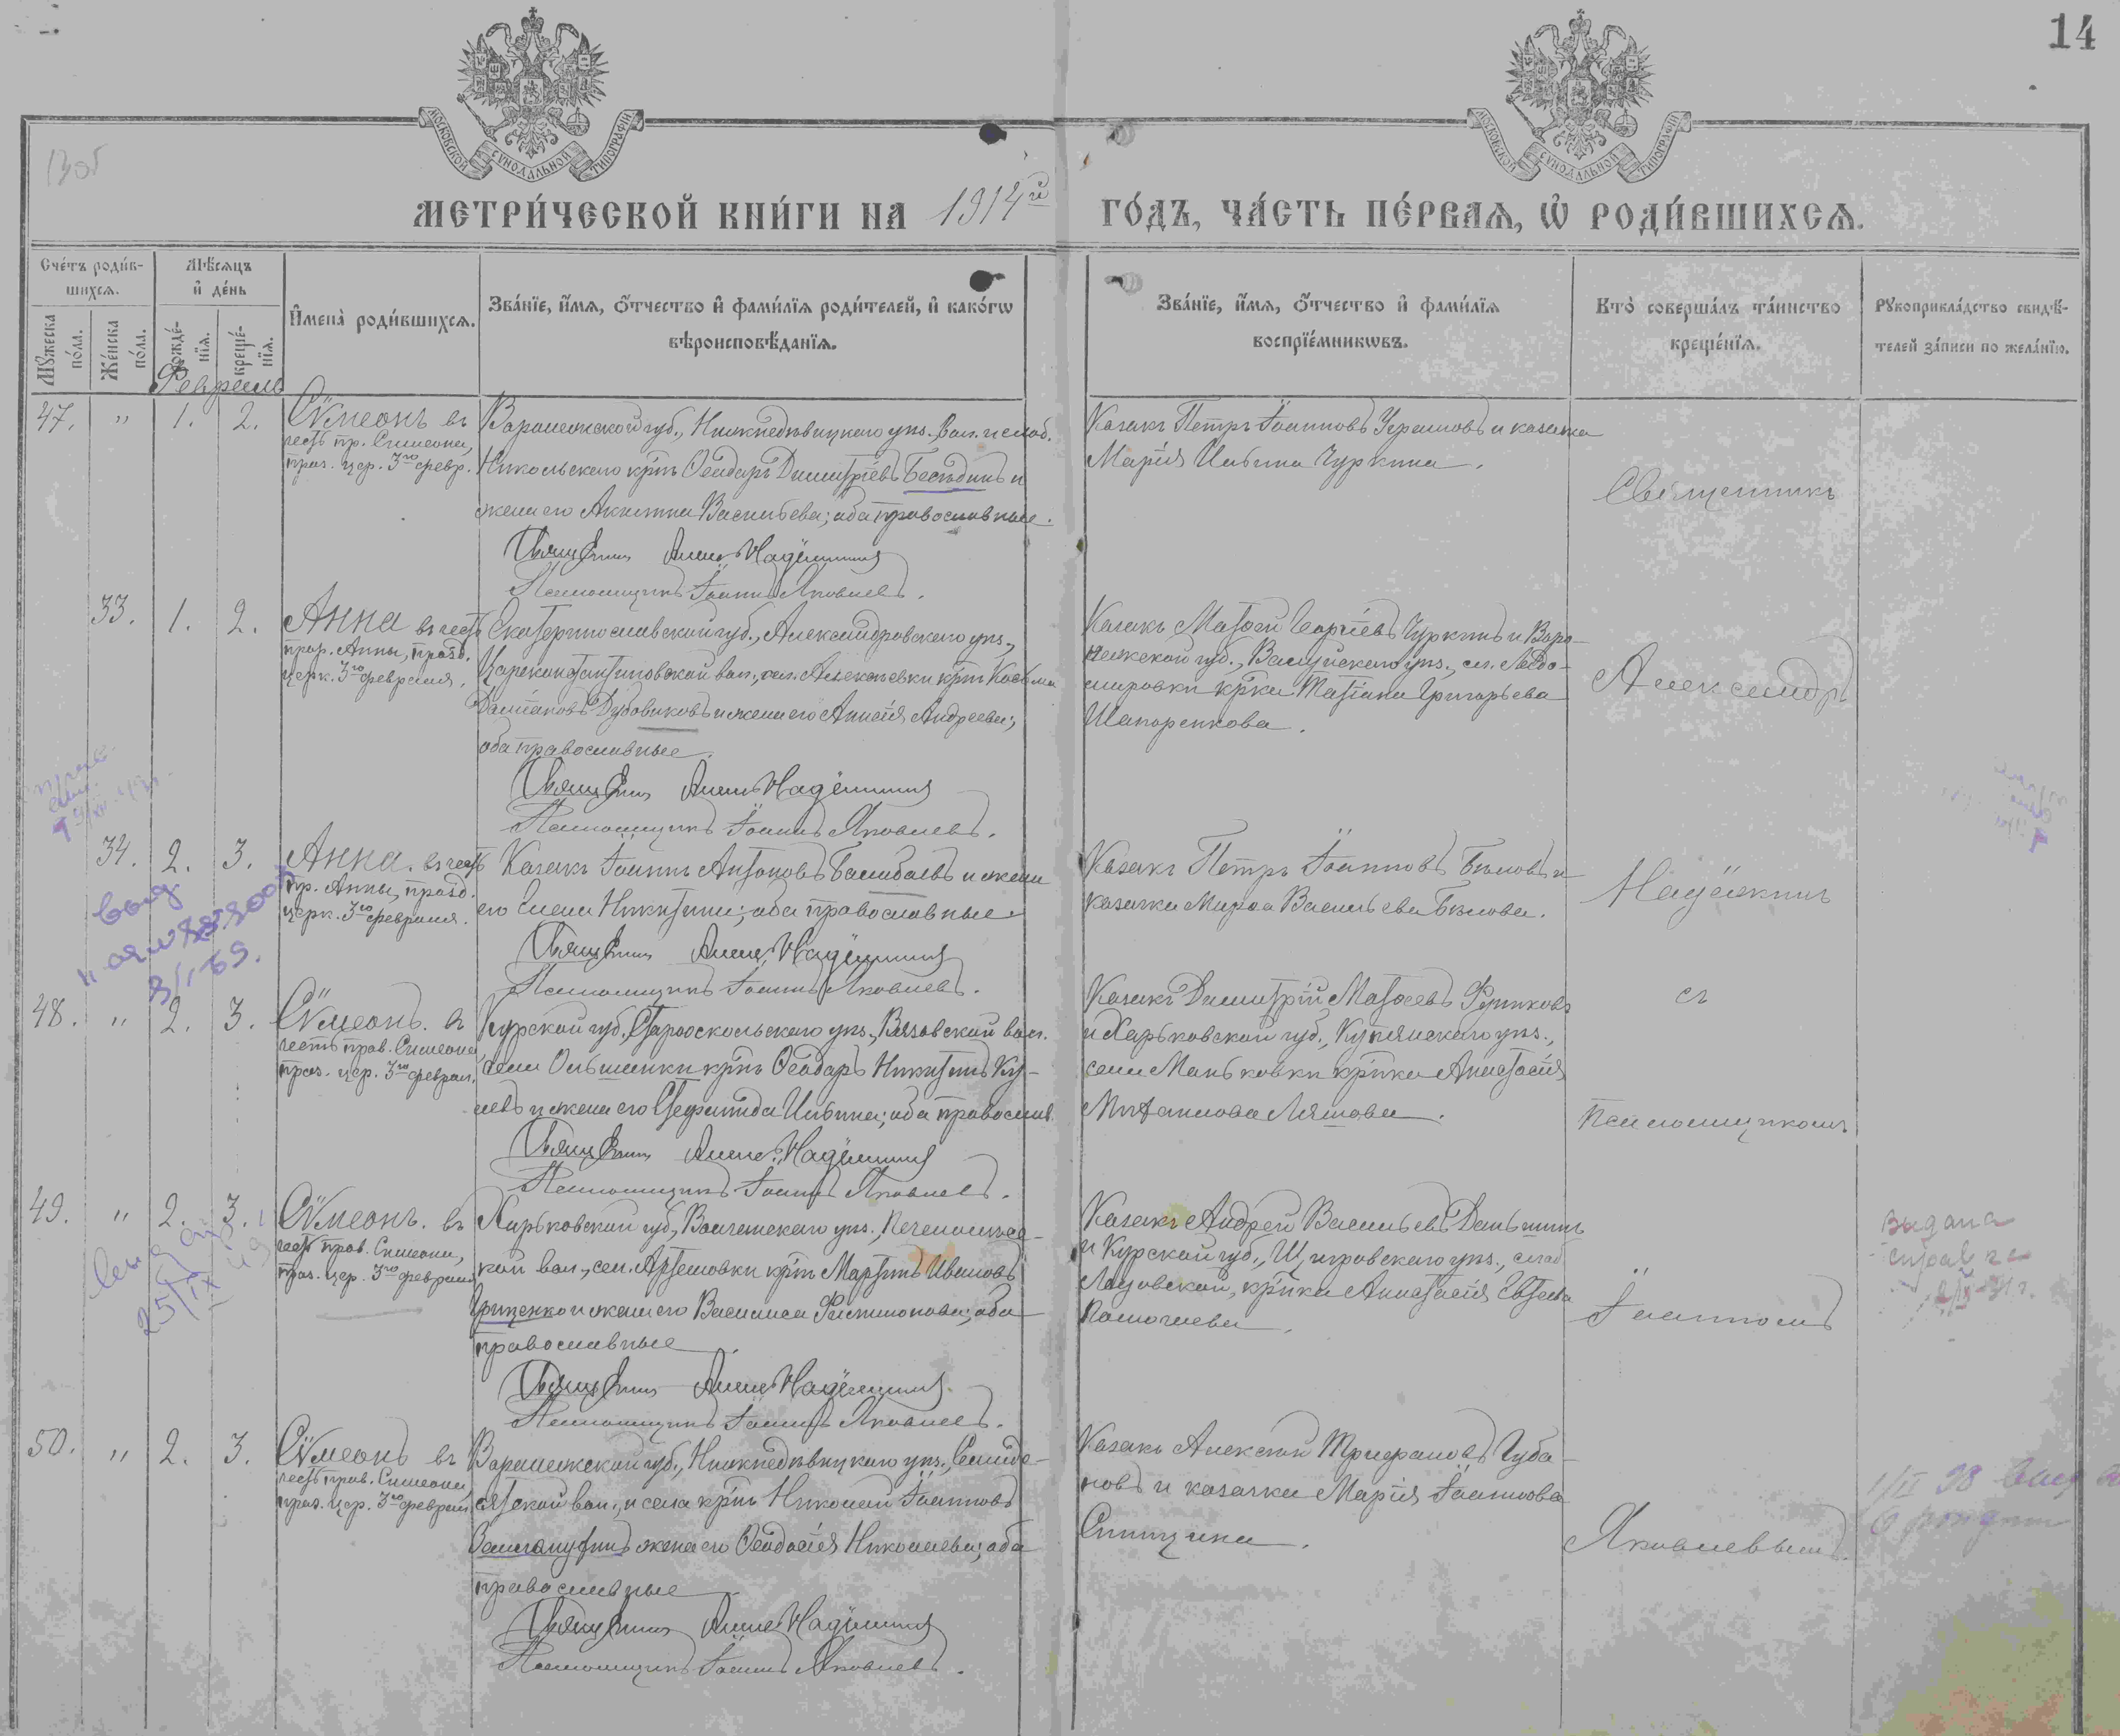 14
МОСКОВСКОЙ СУНОДАЛЬНОЙ ТИПОГРАФІИ
МОСКОВСКОЙ СУНОДАЛЬНОЙ ТИПОГРАФІИ
МЕТРИ́ЧЕСКОЙ КНИ́ГИ НА 1914й ГО́ДЪ, ЧА́СТЬ ПЕ́РВАЯ, Ѡ РОДИ́ВШИХСЯ.
Сче́тъ роди́в-
шихся.
Мѣ́сяцъ
и҆ де́нь
Му́жеска по́ла.
Же́нска по́ла.
рожде́-
нїя.
креще́-
нїя.
И҆мена̀ роди́вшихся.
Зва́нїе, и҆́мя, ѻ҆́тчество и҆ фами́лїя роди́телей, и҆ како́гѡ
вѣроисповѣ́данїя.
Зва́нїе, и҆́мя, ѻ҆́тчество и҆ фами́лїя
воспрїе́мникѡвъ.
Кто̀ соверша́лъ та́инство
креще́нїя.
Рꙋкоприкла́дство свидѣ́-
телей за́писи по жела́нїю.
Февраль
47. " 1. 2.
Сѵмеонъ въ
честь пр. Симеона,
праз. цер. 3го февр.
Воронежской губ., Нижнедѣвицкаго уѣз., вол. и слоб.
Никольскаго кр҃нъ Ѳеодоръ Димитріевъ Бесѣдинъ и
жена его Акилина Васильева; оба православные.
Священникъ Алекс. Надёжинъ
Псаломщикъ Іоаннъ Яковлевъ.
Казакъ Петръ Іоанновъ и казачка
Марія Ильина Чуркина.
Священникъ
33. 1. 2.
Анна въ честь
прор. Анны, празд.
церк. 3го февраля.
Екатеринославской губ., Александровскаго уѣз.,
Цареконстантиновской вол., сел. Алексѣевки кр҃нъ Косьма
Даміановъ Дубовиковъ и жена его Анисія Андреева;
оба православные.
Священникъ Алекс. Надёжинъ
Псаломщикъ Іоаннъ Яковлевъ.
Казакъ Матѳей Георгіевъ Чуркинъ и Воро-
нежской губ., Валуйскаго уѣз., сл.
кр҃нка Татіана Григорьева
Шапоренкова.
Александръ
34. 2. 3.
Анна. въ честь
пр. Анны, празд.
церк. 3го февраля.
Казакъ Іоаннъ Антоновъ и жена
его Елена Никитина; оба православные.
Священникъ Алекс. Надёжинъ
Псаломщикъ Іоаннъ Яковлевъ.
Казакъ Петръ Іоанновъ Бѣловъ и
казачка Марѳа Васильева Бѣлова.
Надёжинъ
48. " 2. 3.
Сѵмеонъ. въ
честь прав. Симеона
праз. цер. 3го феврал.
Курской губ., Старооскольскаго уѣз., Вязовской вол.
села Ольшанки кр҃нъ Ѳеодоръ Никитинъ
и жена его Стефанида Ильина; оба православ.
Священникъ Алекс. Надёжинъ
Псаломщикъ Іоаннъ Яковлевъ.
Казакъ Димитрій Матѳеевъ
и Харьковской губ., Купянскаго уѣз.,
села Маньковки кр҃нка Анастасія
Ляшова.
съ
Псаломщикомъ
49. " 2. 3.
Сѵмеонъ. въ
честь прав. Симеона,
праз. цер. 3го февраля
Харьковской губ., Волчанскаго уѣз., Печенѣжс-
кой вол., сел. Артемовки кр҃нъ Мартинъ Ивановъ
Гриценко и жена его Василиса Филимонова; оба
православные.
Священникъ Алекс. Надёжинъ
Псаломщикъ Іоаннъ Яковлевъ.
Казакъ Андрей Васильевъ Деньшинъ
и Курской губ., Щигровскаго уѣз., слоб
кр҃нка Анастасія
Іоанномъ
выдана
справка
выдан
25/IX 49
50. " 2. 3.
Сѵмеонъ въ
честь прав. Симеона,
праз. цер. 3го феврал.
Воронежской губ., Нижнедѣвицкаго уѣз., Семиде-
сятской вол., и села кр҃нъ Николай Іоанновъ
жена его Ѳеодосія Николаева; оба
православные
Священникъ Алекс. Надёжинъ
Псаломщикъ Іоаннъ Яковлевъ.
Казакъ Алексѣй Трифоновъ Губа-
новъ и казачка Марія Іоаннова
Спицына.
Яковлевымъ.